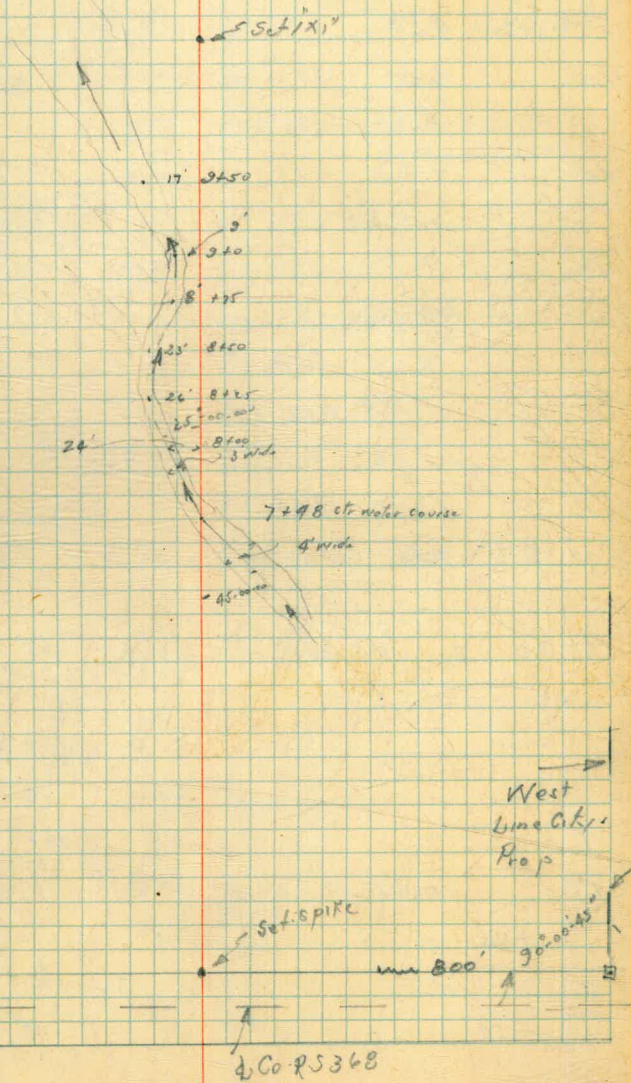 Set 1"x1"
17' 9+50
9'
9+0
8' +75
23' 8+50
26' 8+25
25°-00-00"
24'
8+00
3' wide
7+48 ctr water course
4' wide
45-00-00
West
Line City
Prop
Set spike
800'
90°-00'-45"
℄ Co. RS 368